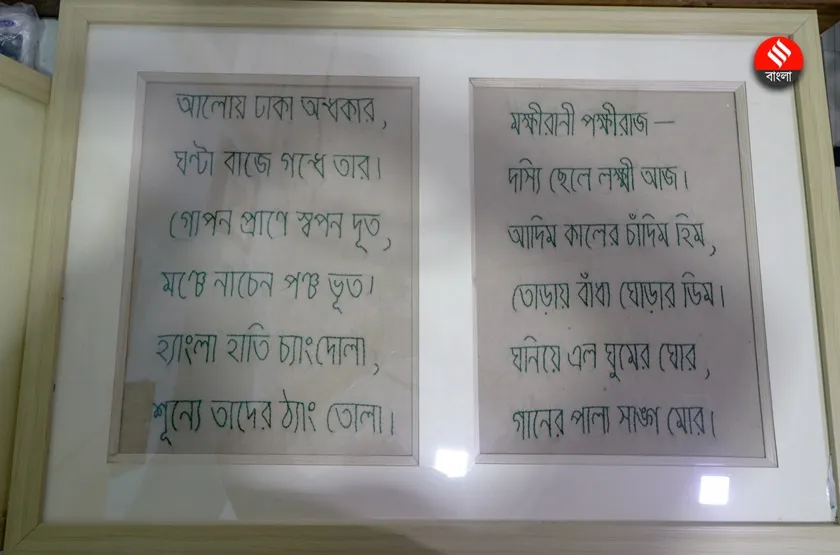 আলোয় ঢাকা অন্ধকার,
ঘণ্টা বাজে গন্ধে তার।
গোপন প্রাণে স্বপন দূত,
মঞ্চে নাচেন পঞ্চ ভূত।
হ্যাংলা হাতি চ্যাংদোলা,
শূন্যে তাদের ঠ্যাং তোলা।
মক্ষীরানী পক্ষীরাজ —
দস্যি ছেলে লক্ষ্মী আজ।
আদিম কালের চাঁদিম হিম,
তোড়ায় বাঁধা ঘোড়ার ডিম।
ঘনিয়ে এল ঘুমের ঘোর,
গানের পালা সাঙ্গ মোর।
বাংলা